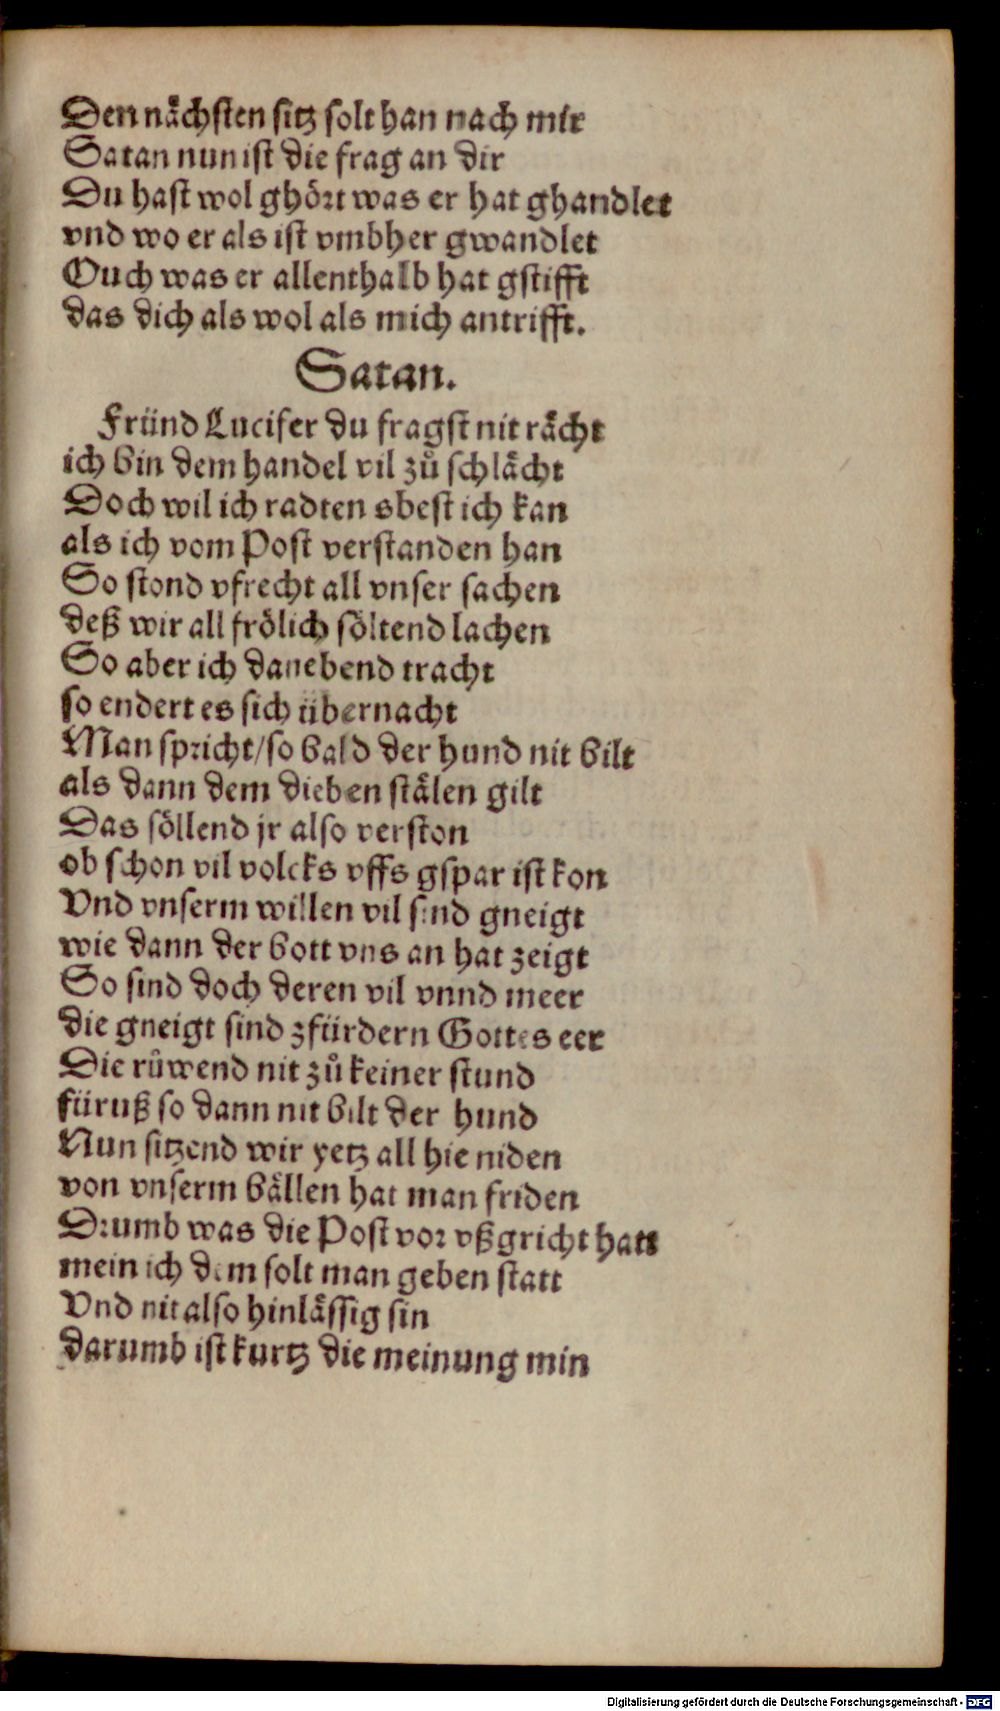 Den naͤchsten sitz solt han nach mir
Satan nun ist die frag an dir
Du hast wol ghoͤrt was er hat ghandlet
vnd wo er als ist vmbher gwandlet
Ouch was er allenthalb hat gstifft
das dich als wol als mich antrifft.
Satan.
Fründ Lucifer du fragst nit raͤcht
ich bin dem handel vil zů schlaͤcht
Doch wil ich radten sbest ich kan
als ich vom Post verstanden han
So stond vfrecht all vnser sachen
deß wir all froͤlich soͤltend lachen
So aber ich danebend tracht
so endert es sich übernacht
Man spricht/so bald der hund nit bilt
als dann dem dieben staͤlen gilt
Das soͤllend jr also verston
ob schon vil volcks vffs gspar ist kon
Vnd vnserm willen vil sind gneigt
wie dann der bott vns an hat zeigt
So sind doch deren vil vnnd meer
die gneigt sind zfürdern Gottes eer
Die růwend nit zů keiner stund
füruß so dann nit bilt der hund
Nun sitzend wir yetz all hie niden
von vnserm baͤllen hat man friden
Drumb was die Post vor vßgricht hatt
mein ich dem solt man geben statt
Vnd nit also hinlaͤssig sin
darumb ist kurtz die meinung min
Digitalisierung gefördert durch die Deutsche Forschungsgemeinschaft - DFG